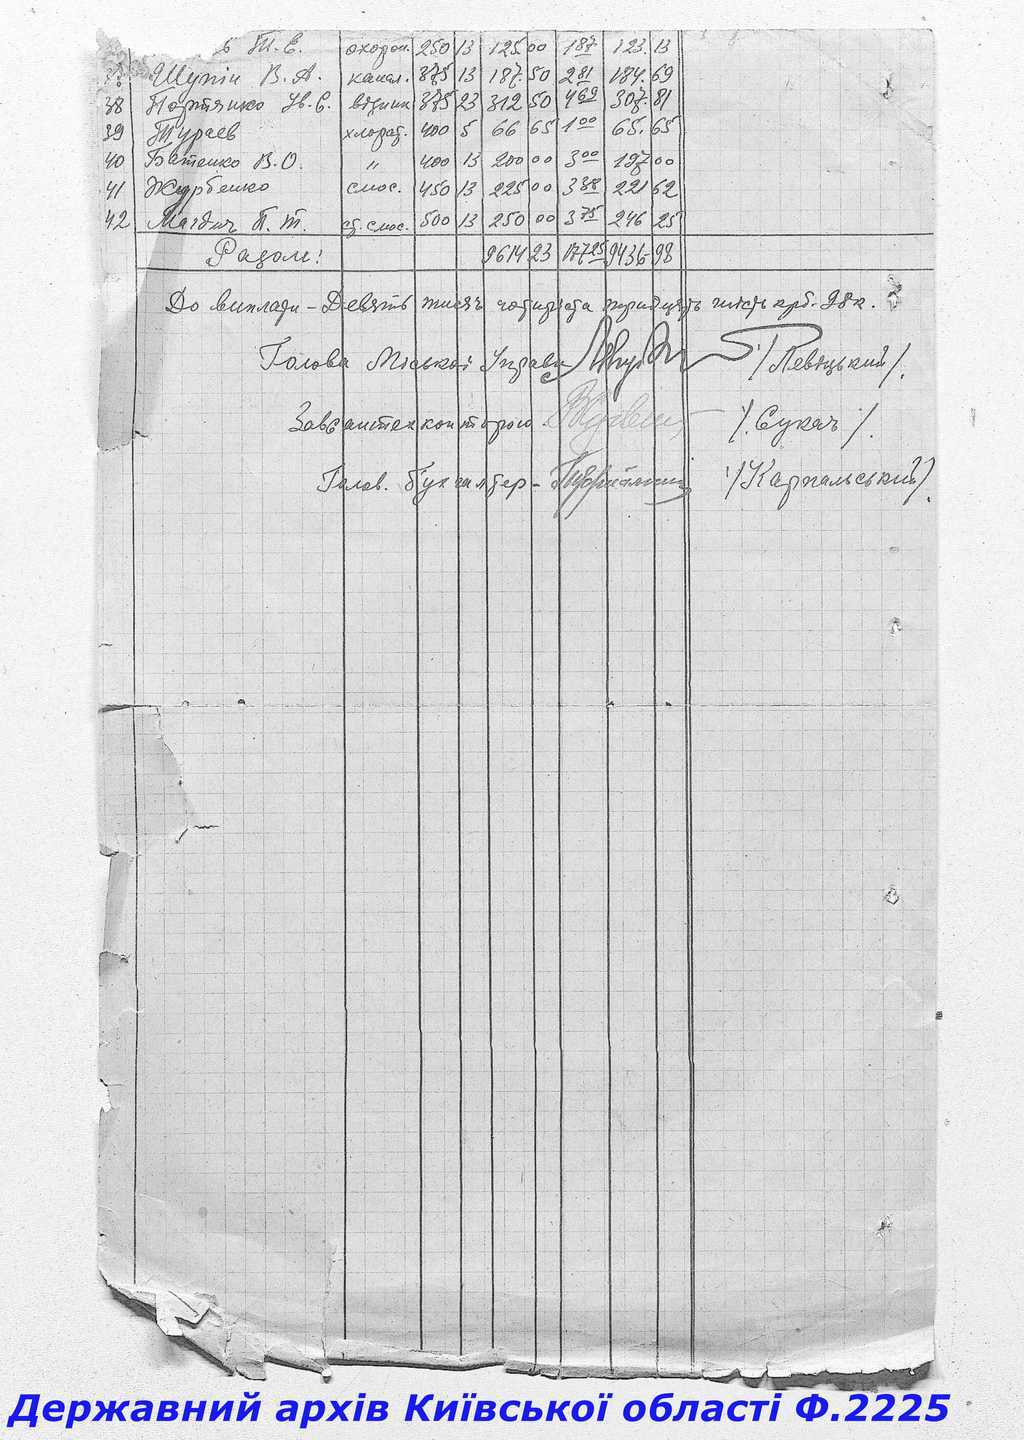 Т. Є. охорон. 250 13 125.00 1 87 123.13
Шупін В. А. канал. 375 13 187.50 2 81 184.69
38 Портянко Ів. Є. 375 23 312 50 4 69 307.81
39 Тураев хлорат. 400 5 66 65 1 00 65.65
40 Батенко В. О. " 400 13 200 00 3 00 197 00
41 Журбенко слюс. 450 13 225 00 3 38 221 62
42 П. Т. ст. слюс. 500 13 250 00 3 75 246 25
Разом: 9614 23 177 25 9436-98
До виплати – Девять тисяч чотириста тридцять шість крб. 98 к.
Голова Міської Управи /Левіцький/.
Завсантехконторою /Сукач/.
Голов. Бухгалтер – /Карпальський/.
Державний архів Київської області Ф.2225